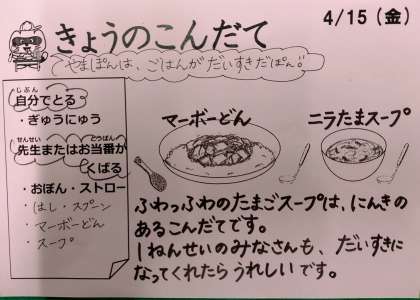 4/15（金）
きょうのこんだて
やまぽんは、ごはんがだいすきだぽん!!
じぶん
自分でとる
・ぎゅうにゅう
せんせい とうばん
先生またはお当番が
くばる
・おぼん・ストロー
・はし・スプーン
・マーボーどん
・スープ
マーボーどん
ニラたまスープ
ふわっふわのたまごスープは、にんきの
あるこんだてです。
1ねんせいのみなさんも、だいすきに
なってくれたらうれしいです。